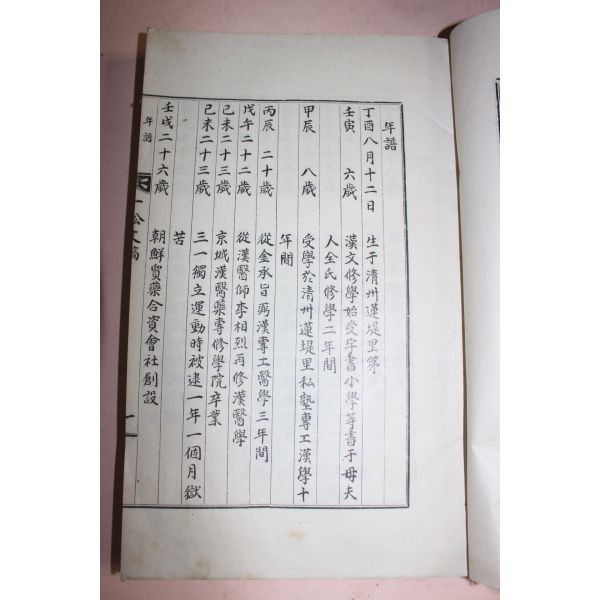 年譜
丁酉八月十二日 生于清州蓮堤里第
壬寅 六歲 漢文修學始受字書小學等書于母夫
人全氏修學二年間
甲辰 八歲 受學於清州蓮堤里私塾專工漢學十
年間
丙辰 二十歲 從金承旨弼漢專工醫學三年間
戊午二十二歲 從漢醫師李相烈再修漢醫學
己未二十三歲 京城漢醫藥專修學院卒業
己未二十三歲 三一獨立運動時被逮一年一個月獄
苦
壬戌二十六歲 朝鮮貿藥合資會社創設
年譜 一松文稿 一